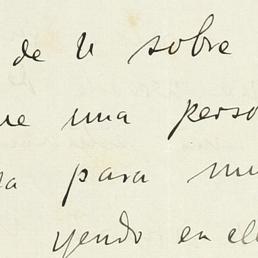 de U sobre
ue una perso
a para mu
yendo en el